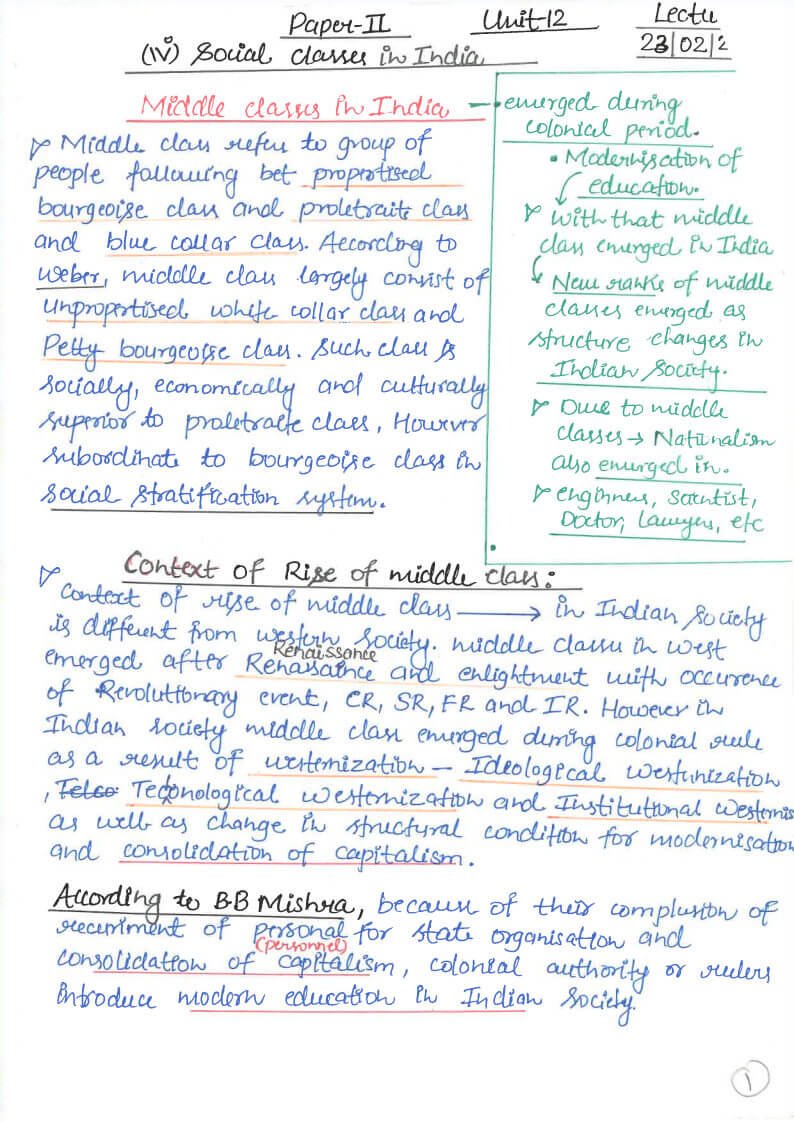 Paper-II Unit-12 Lectu
(IV) Social classes in India 23/02/2
Middle classes in India –
➢ Middle class refer to group of
people following bet propertised
bourgeoise class and proletraite class
and blue collar class. According to
Weber, middle class largely consist of
unpropertised white collar class and
Petty bourgeoise class. Such class is
socially, economically and culturally
superior to proletracte class, However
subordinate to bourgeoise class in
social stratification system.
• emerged during
colonial period.
• Modernisation of
education.
➢ With that middle
class emerged in India
New ranks of middle
classes emerged as
structure changes in
Indian Society.
➢ Due to middle
classes → Nationalism
also emurged in.
➢ enginners, Scientist,
Doctor, Lawyers, etc
Context of Rise of middle class:
➢ Context of rise of middle class → in Indian Society
is different from western society. middle classes in west
Renaissance
emerged after Renasaince and enlightment with occurence
of Revolutionary event, CR, SR, FR and IR. However in
Indian society middle class emerged during colonial rule
as a result of westernization – Ideological westernization
, Telco Technological westernization and Institutional westernis
as well as change in structural condition for modernisation
and consolidation of capitalism.
According to BB Mishra, because of their complusion of
recuriment of personal for state organisation and
(personnel)
consolidation of capitalism, colonial authority or rulers
introduce modern education in Indian Society.
1